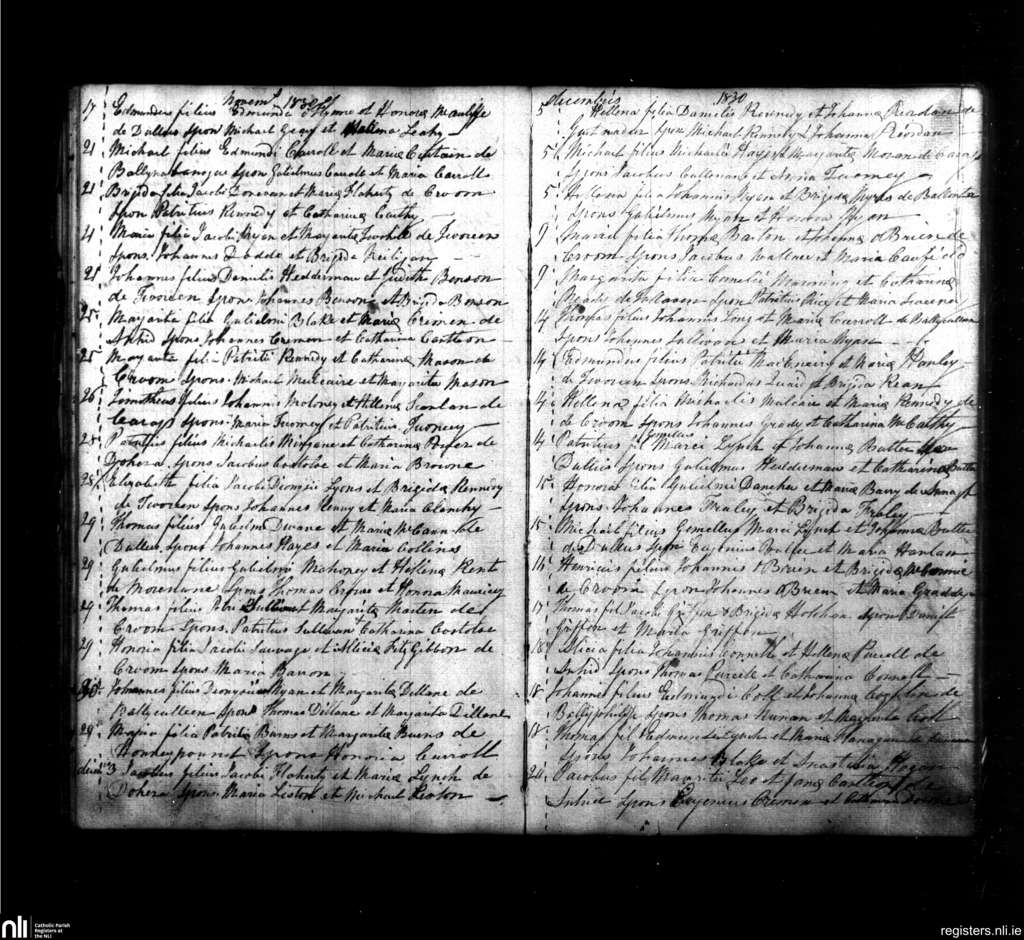 Novemr 1830
17 Edmundus filius Edmundi Flynne et Honora
de Dullas Spon Michael Geary et Helena Leahy
21 Michael filius Edmundi Carroll et Maria de
Spon Gulielmus Carroll et Maria Carroll
21 Brigida filia Jacobi Donovan et Maria Flaherty de Croom
Spon Patritius Kennedy et Catharina Carthy
21 Maria filia Jacobi Ryan et Margarita de Tworeen
Spons. Johannes et Brigida
21 Johannes filius Danielis Hedderman et Judith Benson
de Tworeen Spon Johannes Benson et Brigida Benson
25 Margarita filia Gulielmi Blake et Maria Crimen de
Anhid Spons Johannes Cremen et Catharina Carleton
25 Margarita filia Patritii Kennedy et Catharina Mason de
Croom Spons. Michael Mulcaire et Margarita Mason
26 Timotheus filius Johannis Moloney et Helena Scanlan de
Spons. Maria Twomey et Patritius Twomey
25 Patritius filius Michaelis et Catharina Power de
Dohera Spons Jacobus Costoloe et Maria Browne
28 Elizabeth filia Jacobi Dionysii Lyons et Brigida Kennedy
de Tworeen Spons Johannes Henry et Maria Clanchy
29 Thomas filius Gulielmi Dwane et Maria McCann de
Dullas Spons Johannes Hayes et Maria Collins
29 Gulielmus filius Gulielmi Mahoney et Hellena Kent
de Spons Thomas et Honora
29 Thomas filius Petri Sullivan et Margarita Marten de
Croom Spons. Patritius Sullivan + Catharina Costoloe
29 Honoria filia Jacobi Sauvage et Alicia FitzGibbon de
Croom Spons Maria Baron
30 Johannes filius Dionysii Ryan et Margarita Dillane de
Ballyculleen Spons Thomas Dillane et Margarita Dillane
29 Maria filia Patritii Burns et Margarita Burns de
Spons Honoria Carroll
decm 3 Jacobus filius Jacobi Flaherty et Maria Lynch de
Dohera Spons Maria Liston et Michael Liston
decembris 1830
5 Hellena filia Danielis Kennedy et Johanna Reardan de
Spon Michael Kennedy & Johanna Riordan
5 Michael filius Michaelis Hayes et Margarita Moran de
Spons Jacobus Callanan et Anna Twomey
5 Hellena filia Johannis Ryan et Brigida de
Spons Gulielmus Ryan et Honora Ryan
9 Maria filia Thomae Barten et Johanna OBrien de
Croom Spons Jacobus Wallace et Maria Canfield
9 Margarita filia Cornelii Manning et Catharina
Ready de Spon Patritius Rice et Maria
14 Thomas filius Johannis Long et Maria Carroll de Ballycullane
Spons Johannes Sullivan et Maria Ryan
14 Edmundus filius Patritii MacEneiry et Maria Hanley
de Tworeen Spons Richardus et Brigida Kean
14 Hellena filia Michaelis Mulcaire et Maria Kennedy de
de Croom Spons Johannes Grady et Catharina McCarthy
14 Patritius fil Gemellus Marci Lynch et Johanna Butler
Dullas Spons Gulielmus Hedderman et Catharina Butler
15 Honora filia Gulielmi Daneher et Maria Barry de
Spons Johannes Fraley et Brigida Fraley
15 Michael filius Gemellus Marci Lynch et Johanna Butler
de Dullas Spon Eugenius Butler et Maria Hanlan
16 Franciscus filius Johannis OBrien et Brigida
de Croom Spon Johannes OBrien et Maria
17 Thomas fil Jacobi Griffin & Brigida Spons
Griffin et Maria Griffin
18 Alicia filia Johannis Connell et Hellena Purcell de
Anhid Spons Thomas Purcell et Catharina Connell
18 Johannes filius Edmundi Coll et Johanna Coghlen de
Ballyphilip Spons Thomas Nunan et Margarita Coll
18 Thomas fil Edmundi Lynch et Maria Flanagan de
Spons Johannes Blake et Anastasia Hogan
20 Jacobus fil Mauritii Leo et Jana Carleton de
Anhid Spons Eugenius Crimen et Catharina
nli
Catholic Parish
Registers at
the NLI
registers.nli.ie